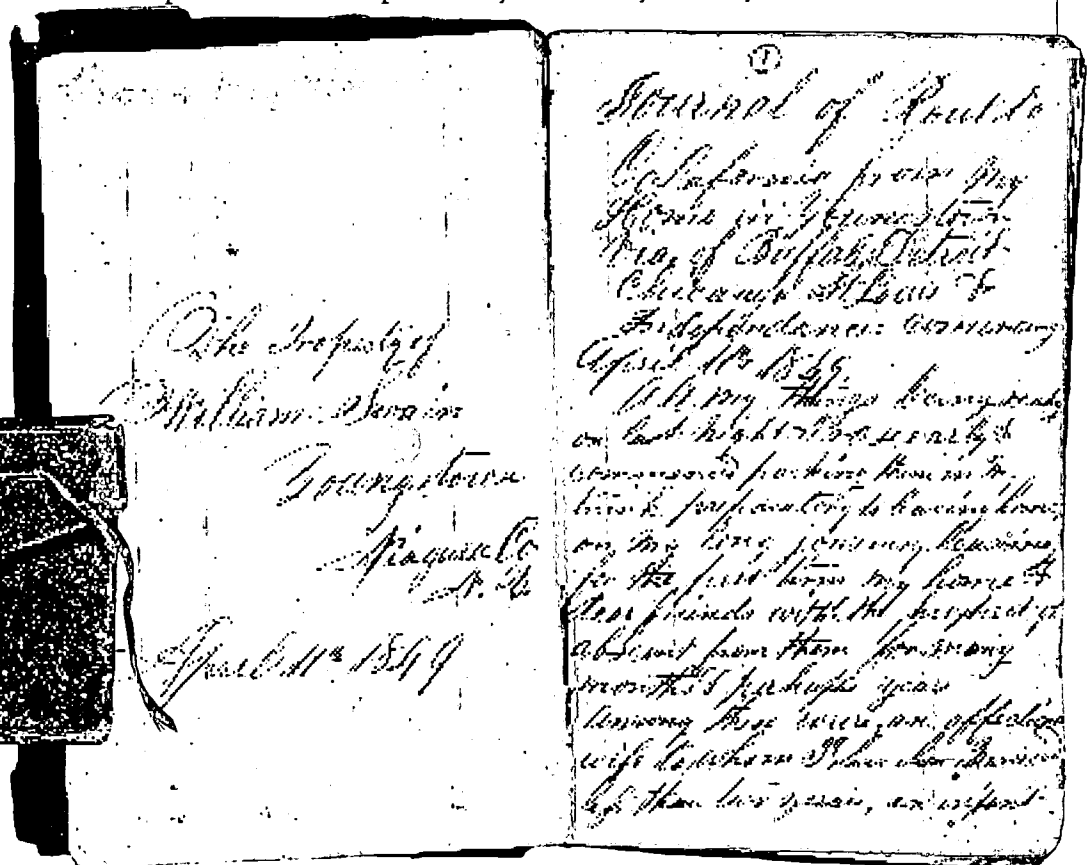 The Property of
William Swain
Youngstown
Niagara Co
N. Y.
April 11th 1849
1
Journal of Rout to
California from My
Home in Youngstown
Via, of Buffalo, Detroit
Chicago St Louis &
Independance: Commencing
April 11th 1849
All my things being ready
on last night I rose early &
commenced packing them in
trunk preparatory to
on my long journey, leaving
for the first time my home &
dear friends with the prospect of
absent from them for many
months & perhaps years
Among them were, an affectionate
wife to whom I have been married
less than two years, an infant